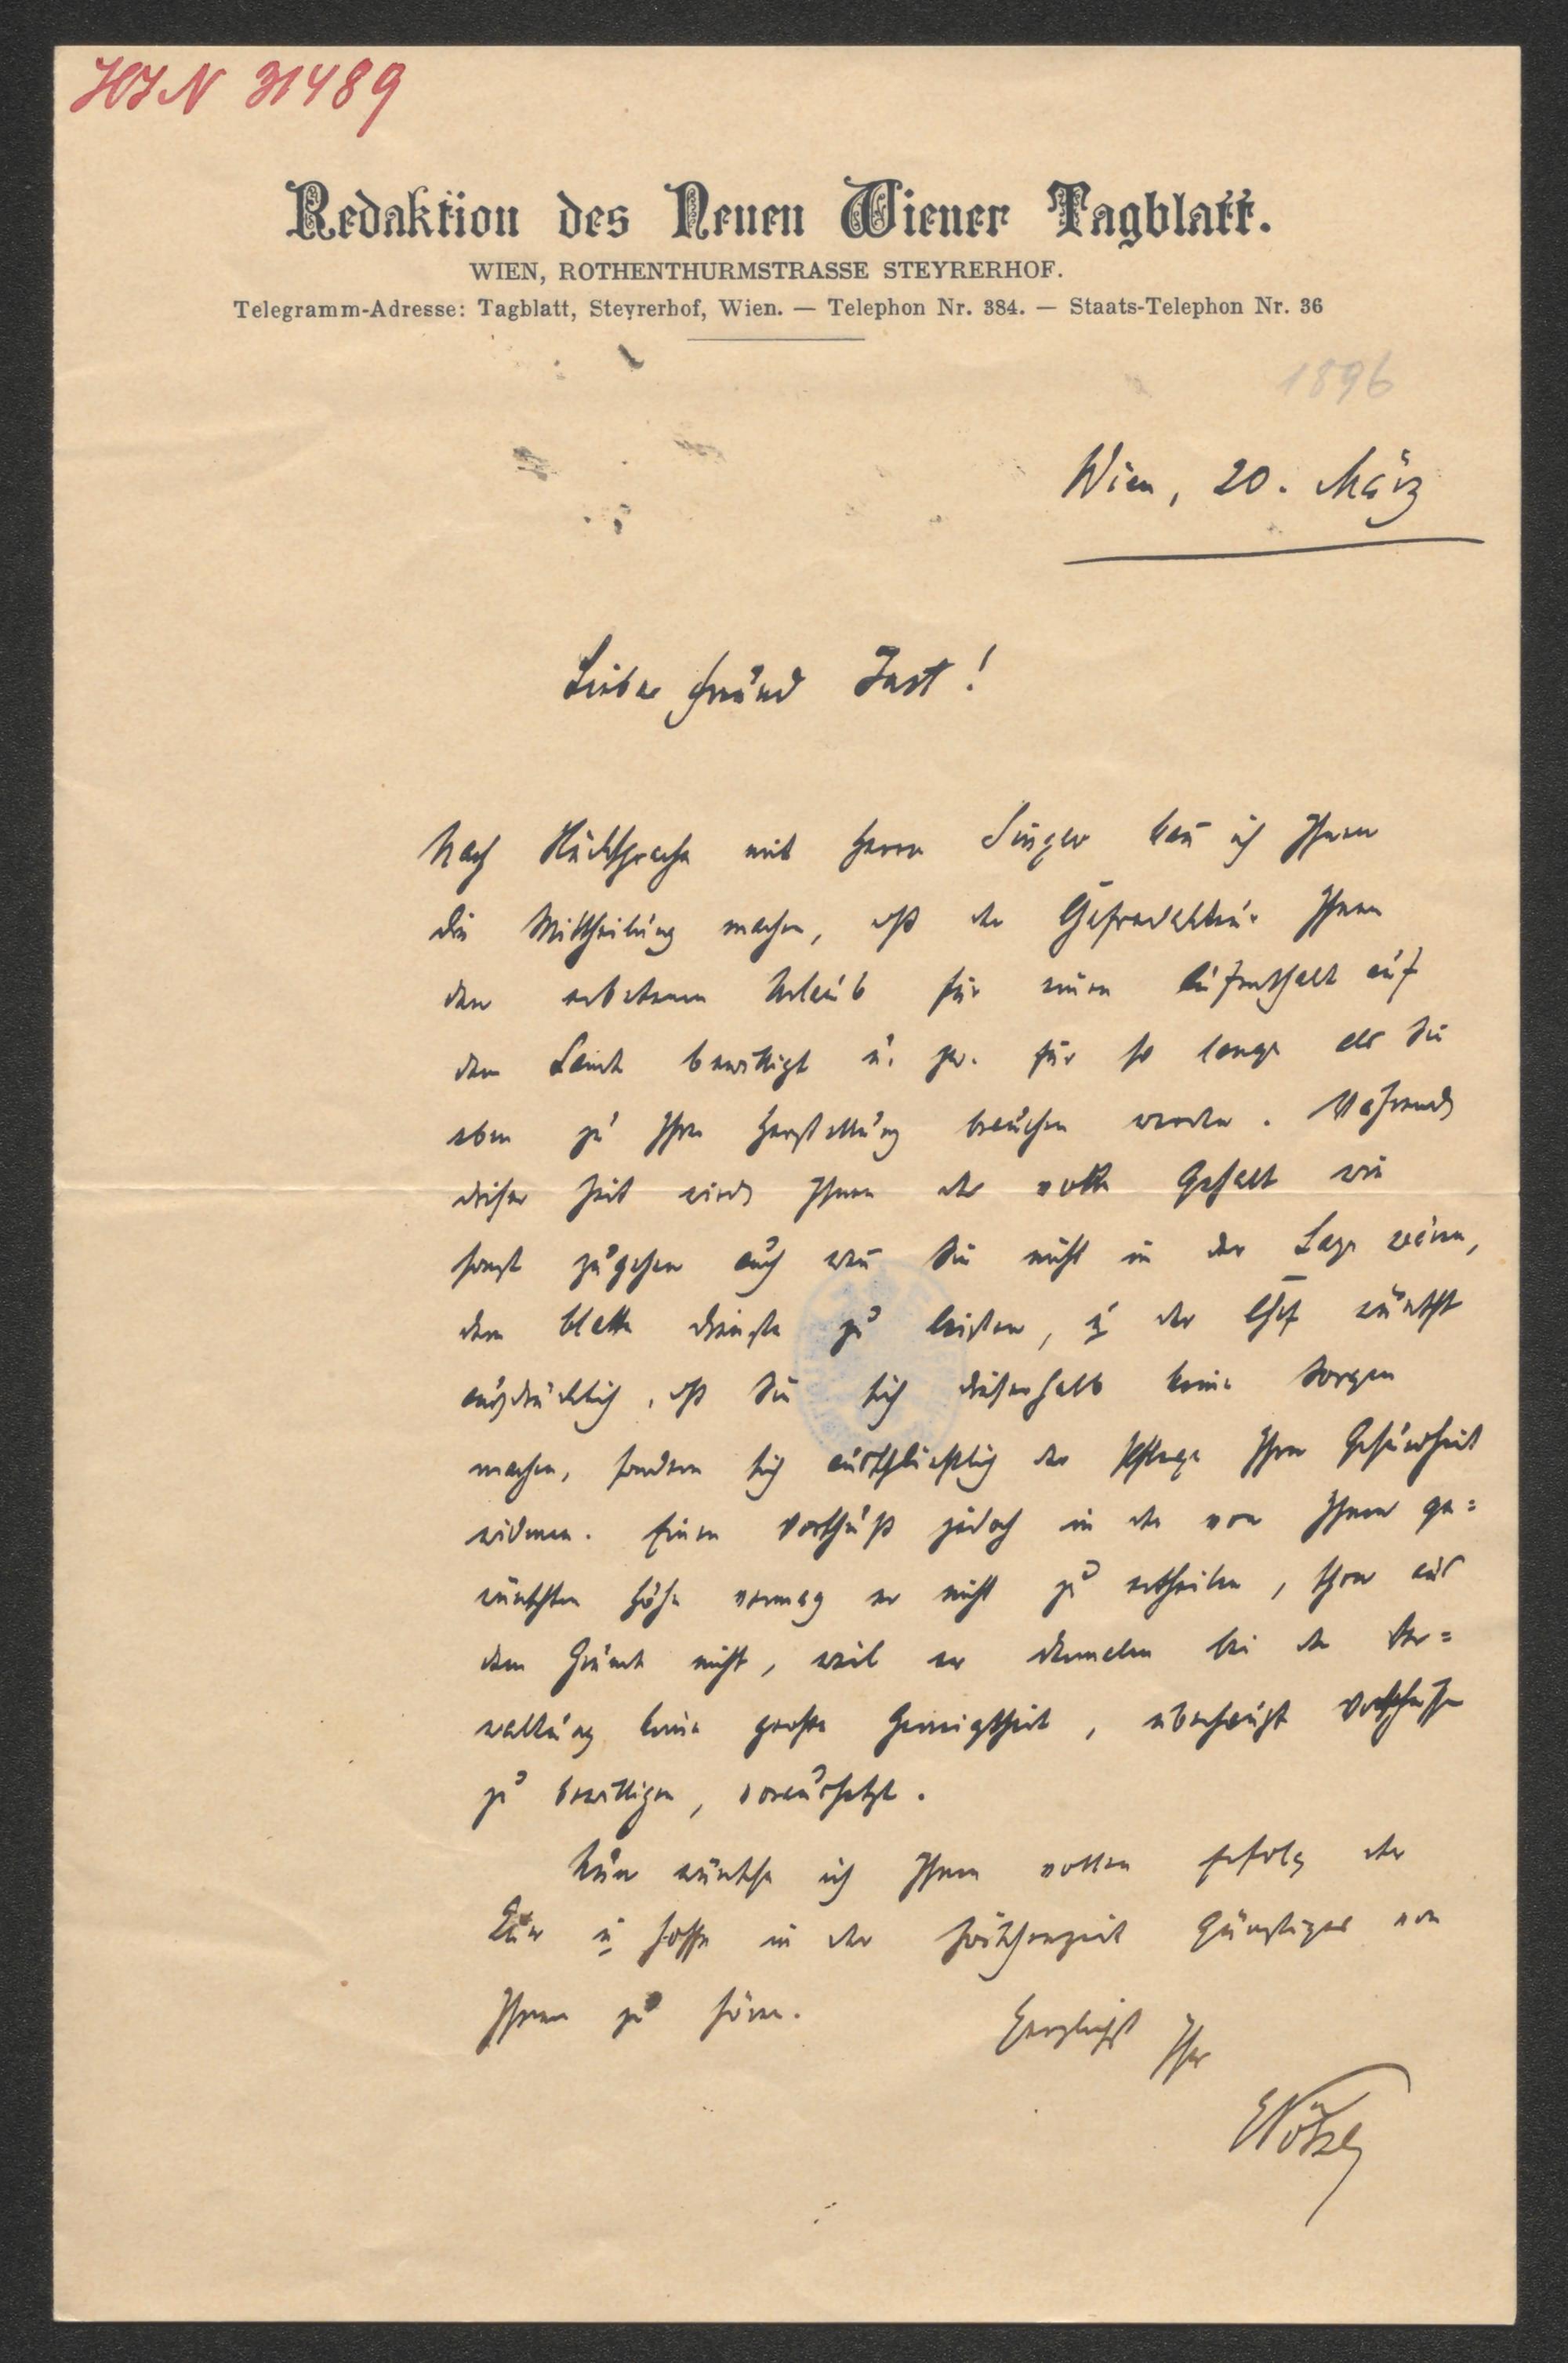 HIN 31489
Redaktion des Neuen Wiener Tagblatt.
WIEN, ROTHENTHURMSTRASSE STEYRERHOF.
Telegramm-Adresse: Tagblatt, Steyrerhof, Wien. — Telephon Nr. 384. — Staats-Telephon Nr. 36
1896
Wien, 20. März
Lieber Freund Jast!
Nach Rücksprache mit Herrn Singer kan̄ ich Ihnen
die Mittheilung machen, dß der Chefredakteur Ihnen
den erbetenen Urlaub für einen Aufenthalt auf
dem Lande bewilligt u. zw. für so lange als Sie
eben zu Ihrer Herstellung brauchen werden. Während
dieser Zeit wird Ihnen der volle Gehalt wie
sonst zugehen auch wen̄ Sie nicht in der Lage wären,
dem Blatte Dienste zu leisten, u der Chef wünscht
ausdrücklich, dß Sie sich dieserhalb keine Sorgen
machen, sondern sich ausschließlich der Pflege Ihrer Gesundheit
widmen. Einen Vorschuß jedoch in der von Ihnen ge=
wünschten Höhe vermag er nicht zu ertheilen, schon aus
dem Grunde nicht, weil er dermalen bei der Ver=
waltung keine große Geneigtheit, überhaupt Vorschüsse
zu bewilligen, voraussetzt.
Nun wünsche ich Ihnen vollen Erfolg der
Kur u hoffe in der Zwischenzeit Günstiges von
Ihnen zu hören.
Herzlichst Ihr